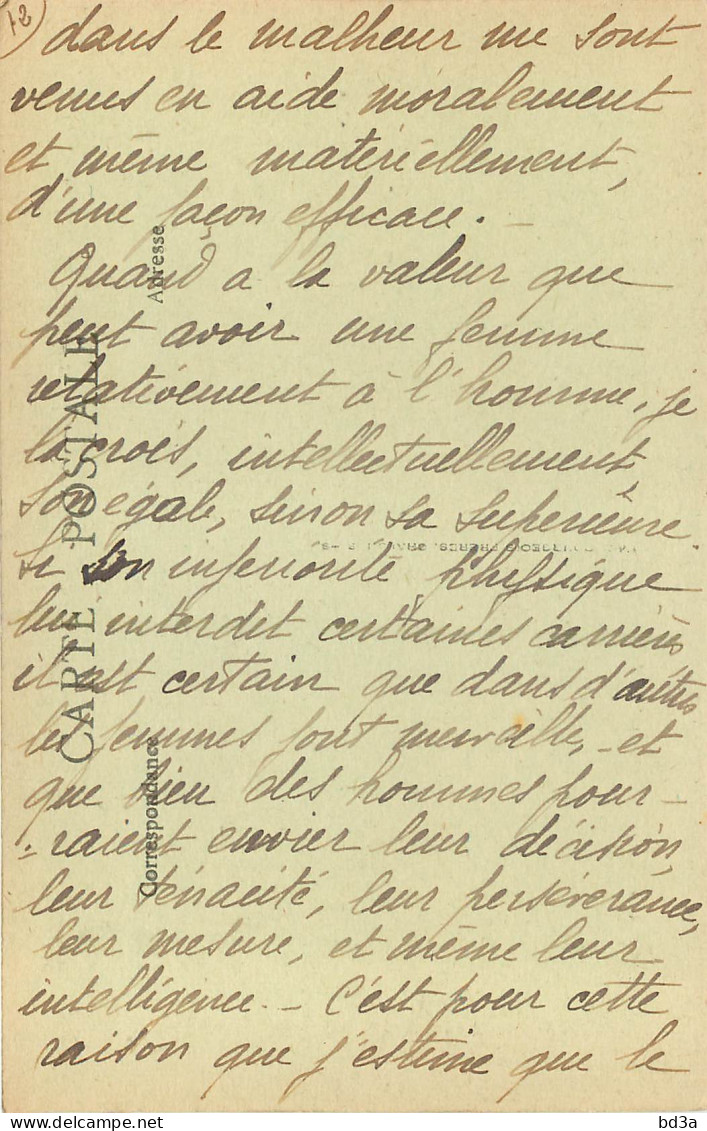 12
dans le malheur me sont
venus en aide moralement
et même matériellement,
d'une façon efficace. -
Quand a la valeur que
peut avoir une femme
relativement à l'homme, je
la crois, intellectuellement,
son égale, sinon sa supérieure
Si son infériorité physique
lui interdit certaines carrières
il est certain que dans d'autres
les femmes font merveille, - et
que bien des hommes pour-
-raient envier leur décision,
leur ténacité, leur persévérance,
leur mesure, et même leur
intelligence. - C'est pour cette
raison que j'estime que le
CARTE POSTALE
Correspondance
Adresse
delcampe.net
bd3a